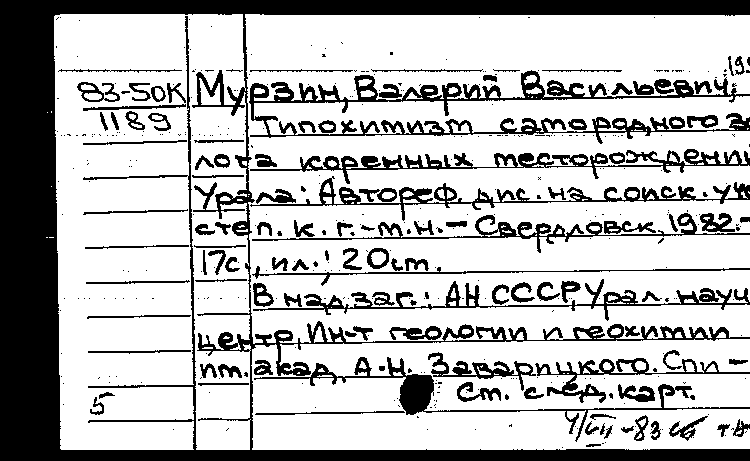 83-50К Мурзин, Валерий Васильевич,
1189 Типохимизм самородного зо
лота коренных месторождений
Урала: Автореф. дис. на соиск. уч
степ. к. г.-м.н. - Свердловск, 1982.-
17с., ил.; 20см.
В надзаг.: АН СССР, Урал. науч
центр, Ин-т геологии и геохимии
им. акад. А.Н. Заварицкого. Спи -
См. след. карт.
5